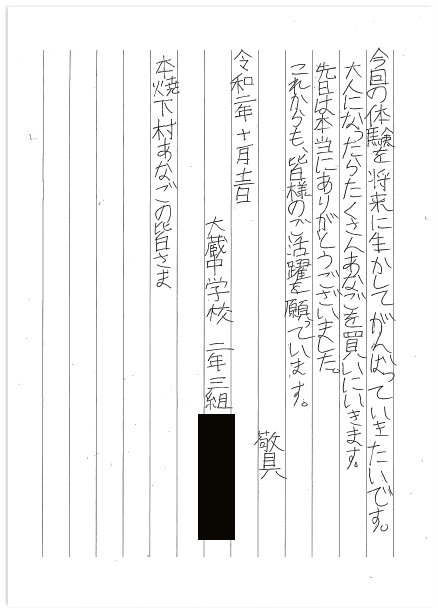 今回の体験を将来に生かしてがんばっていきたいです。
大人になったらたくさんあなごを買いにいきます。
先日は本当にありがとうございました。
これからも、皆様のご活躍を願っています。
敬具
令和二年十月十二日
大蔵中学校 二年三組
本焼下村あなごの皆さま